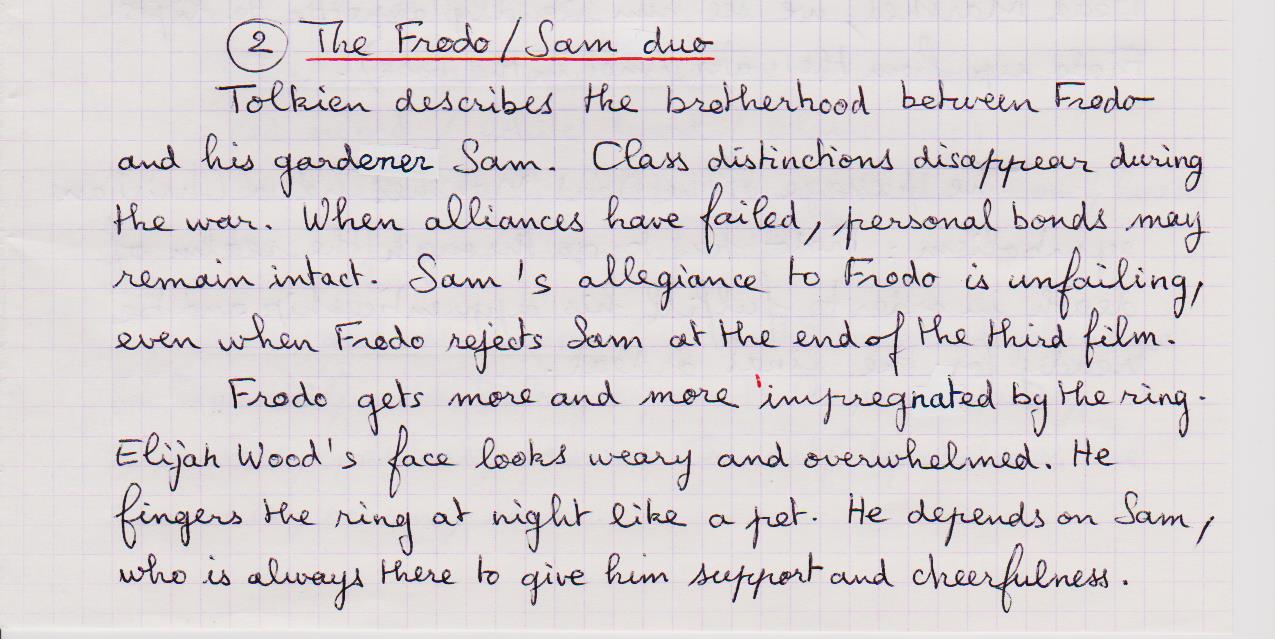 2 The Frodo/Sam duo
Tolkien describes the brotherhood between Frodo
and his gardener Sam. Class distinctions disappear during
the war. When alliances have failed, personal bonds may
remain intact. Sam's allegiance to Frodo is unfailing,
even when Frodo rejects Sam at the end of the third film.
Frodo gets more and more 'impregnated by the ring.
Elijah Wood's face looks weary and overwhelmed. He
fingers the ring at night like a pet. He depends on Sam,
who is always there to give him support and cheerfulness.